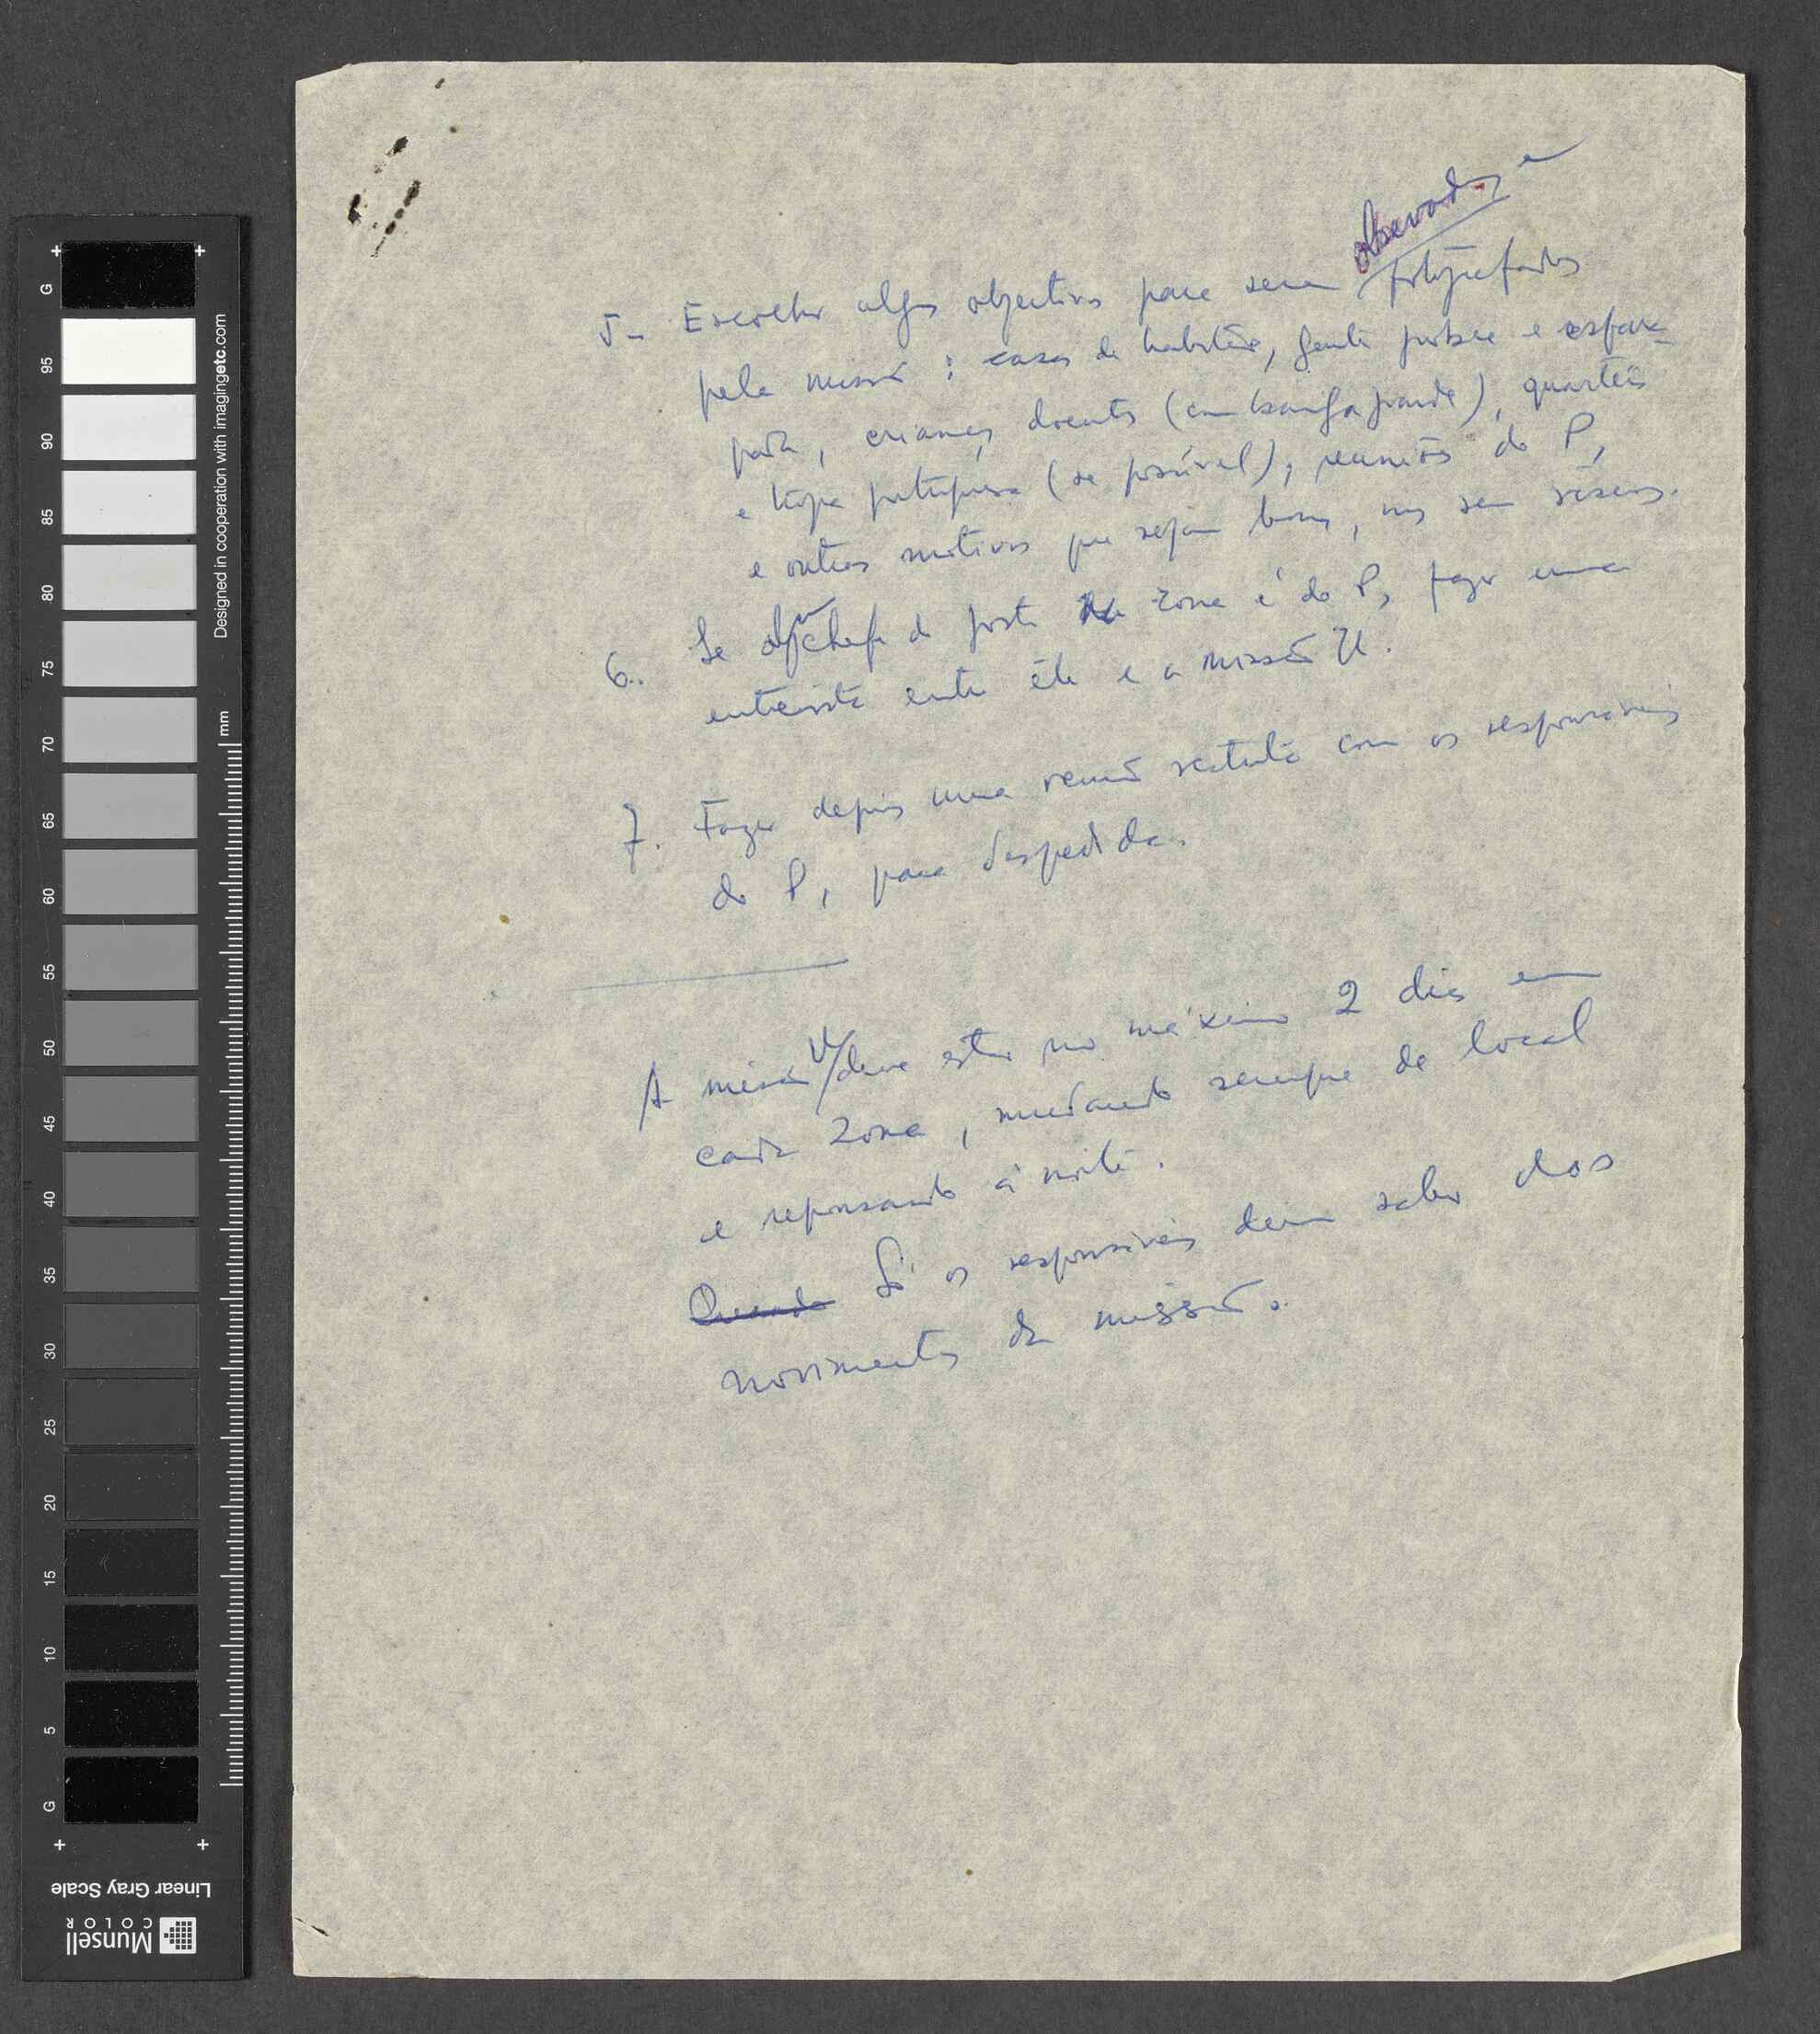 observados e
5- Escolher alguns objectivos para serem fotografados
pela missão: casas de habitação, gente pobre e esfar-
pada, crianças doentes (com barriga grande), quarteis
e tropa portuguesa (se possível), reuniões do P,
e outros motivos que sejam bons, mas sem riscos.
6. Se algum chefe de posto da zona é do P, fazer uma
entrevista entre êle e a missão U.
7. Fazer depois uma reunião restrita com os responsáveis
do P, para despedida.
A missão U deve estar no máximo 2 dias em
cada zona, mudando sempre de local
e repousando à noite.
Quando Só os responsáveis devem saber dos
movimentos da missão.
G
95
90
85
80
75
70
65
60
55
50
45
40
35
30
25
20
15
10
5
G
mm
Designed in cooperation with imagingetc.com
Linear Gray Scale
Munsell
COLOR